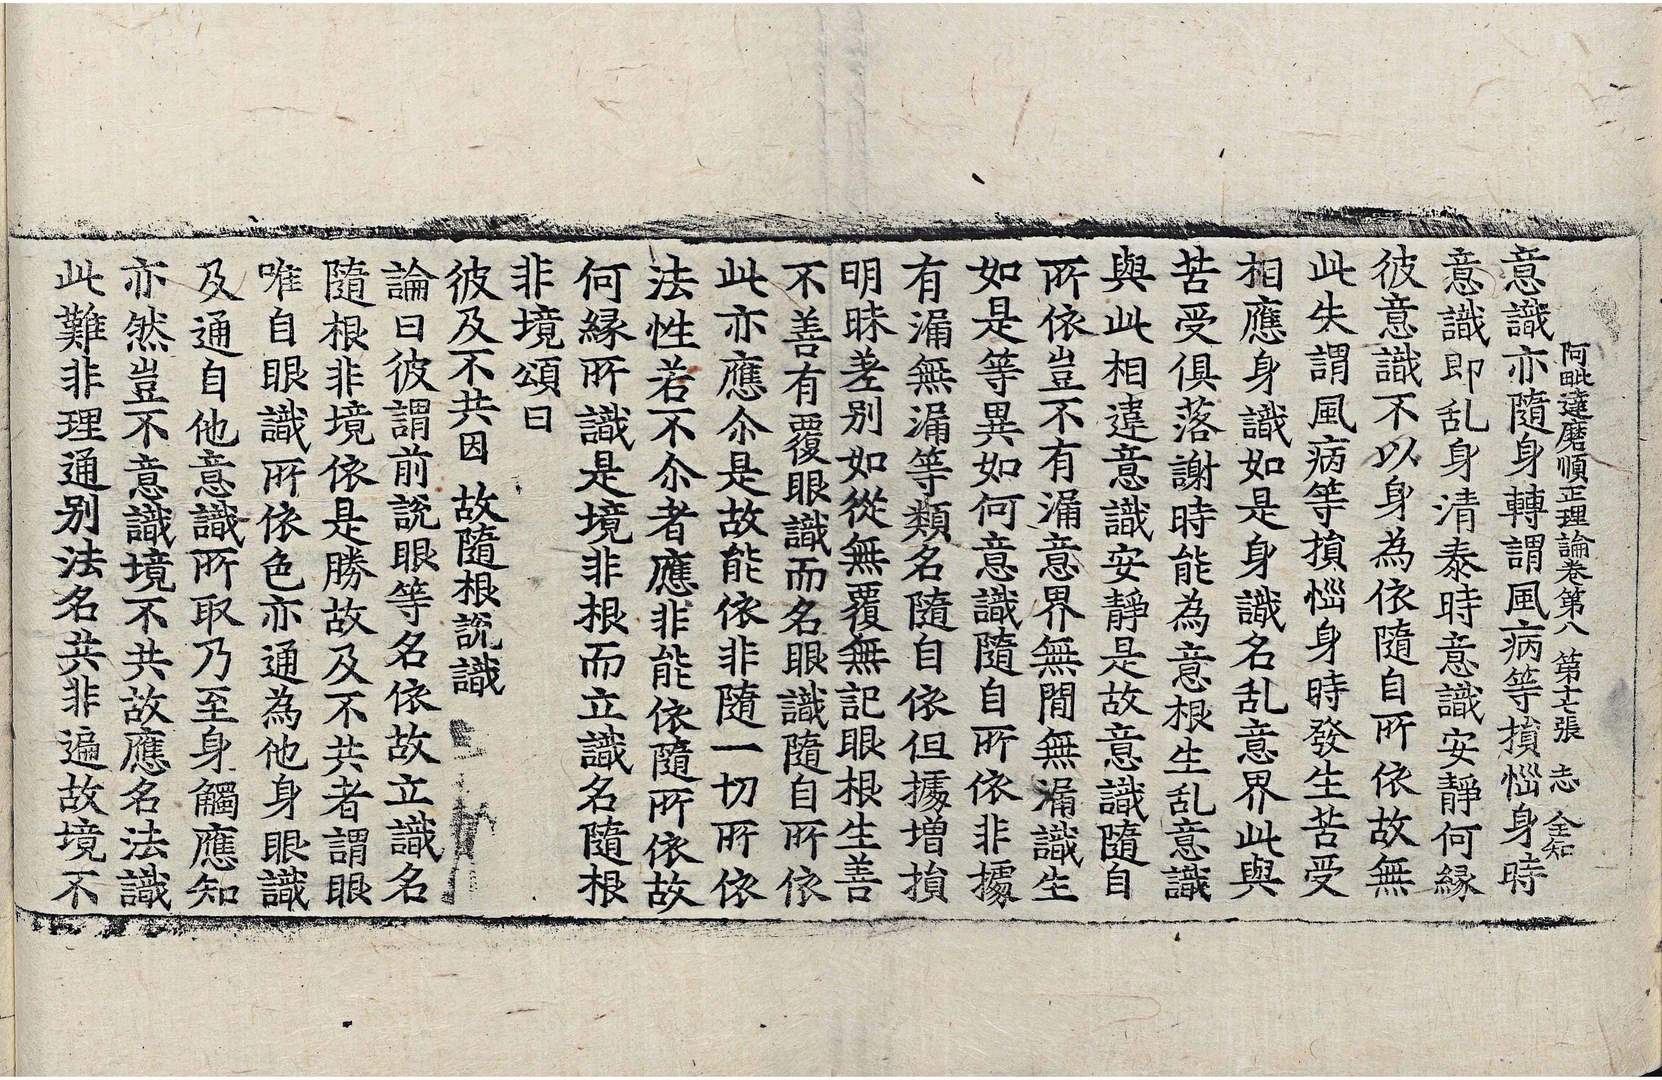 阿毗達磨順正理論卷第八 第十七張 志 全知
意識亦隨身轉謂風病等損惱身時
意識即乱身清泰時意識安靜何緣
彼意識不以身為依隨自所依故無
此失謂風病等損惱身時發生苦受
相應身識如是身識名乱意界此與
苦受俱落謝時能為意根生乱意識
與此相違意識安靜是故意識隨自
所依豈不有漏意界無間無漏識生
如是等異如何意識隨自所依非據
有漏無漏等類名隨自依但據增損
明昧差別如從無覆無記眼根生善
不善有覆眼識而名眼識隨自所依
此亦應尒是故能依非隨一切所依
法性若不尒者應非能依隨所依故
何緣所識是境非根而立識名隨根
非境頌曰
彼及不共因 故隨根說識
論曰彼謂前說眼等名依故立識名
隨根非境依是勝故及不共者謂眼
唯自眼識所依色亦通為他身眼識
及通自他意識所取乃至身觸應知
亦然豈不意識境不共故應名法識
此難非理通別法名共非遍故境不